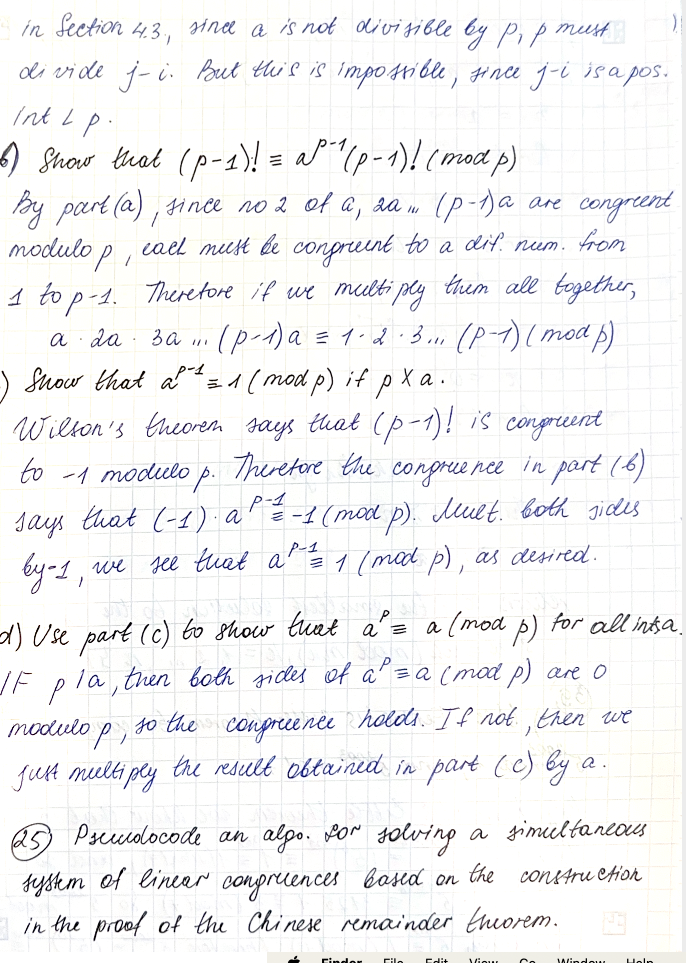 in Section 4.3., since a is not divisible by p, p must
divide j-i. But this is impossible, since j-i is a pos.
Int < p.
b) Show that (p-1)! ≡ a^p-1 (p-1)! (mod p)
By part (a), since no 2 of a, 2a ... (p-1)a are congruent
modulo p, each must be congruent to a dif. num. from
1 to p-1. Therefore if we multiply them all together,
a · 2a · 3a ... (p-1)a ≡ 1·2·3... (p-1) (mod p)
) Show that a^p-1 ≡ 1 (mod p) if p ∤ a.
Wilson's theorem says that (p-1)! is congruent
to -1 modulo p. Therefore the congruence in part (b)
says that (-1)·a^p-1 ≡ -1 (mod p). Mult. both sides
by -1, we see that a^p-1 ≡ 1 (mod p), as desired.
d) Use part (c) to show that a^p ≡ a (mod p) for all ints a.
IF p|a, then both sides of a^p ≡ a (mod p) are 0
modulo p, so the congruence holds. If not, then we
just multiply the result obtained in part (c) by a.
25 Pseudocode an algo. for solving a simultaneous
system of linear congruences based on the construction
in the proof of the Chinese remainder theorem.
Finder File Edit View Go Window Help